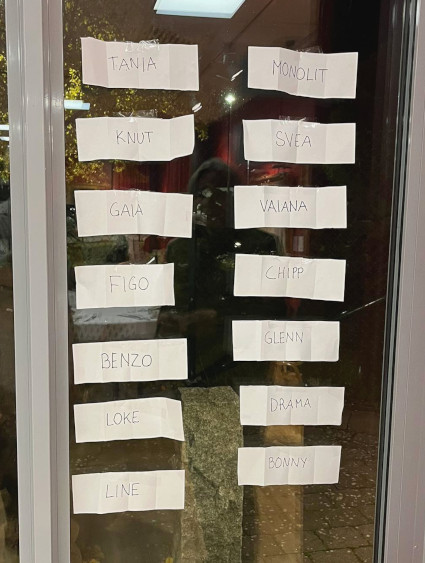 TANJA
KNUT
GAIA
FIGO
BENZO
LOKE
LINE
MONOLIT
SVEA
VAIANA
CHIPP
GLENN
DRAMA
BONNY